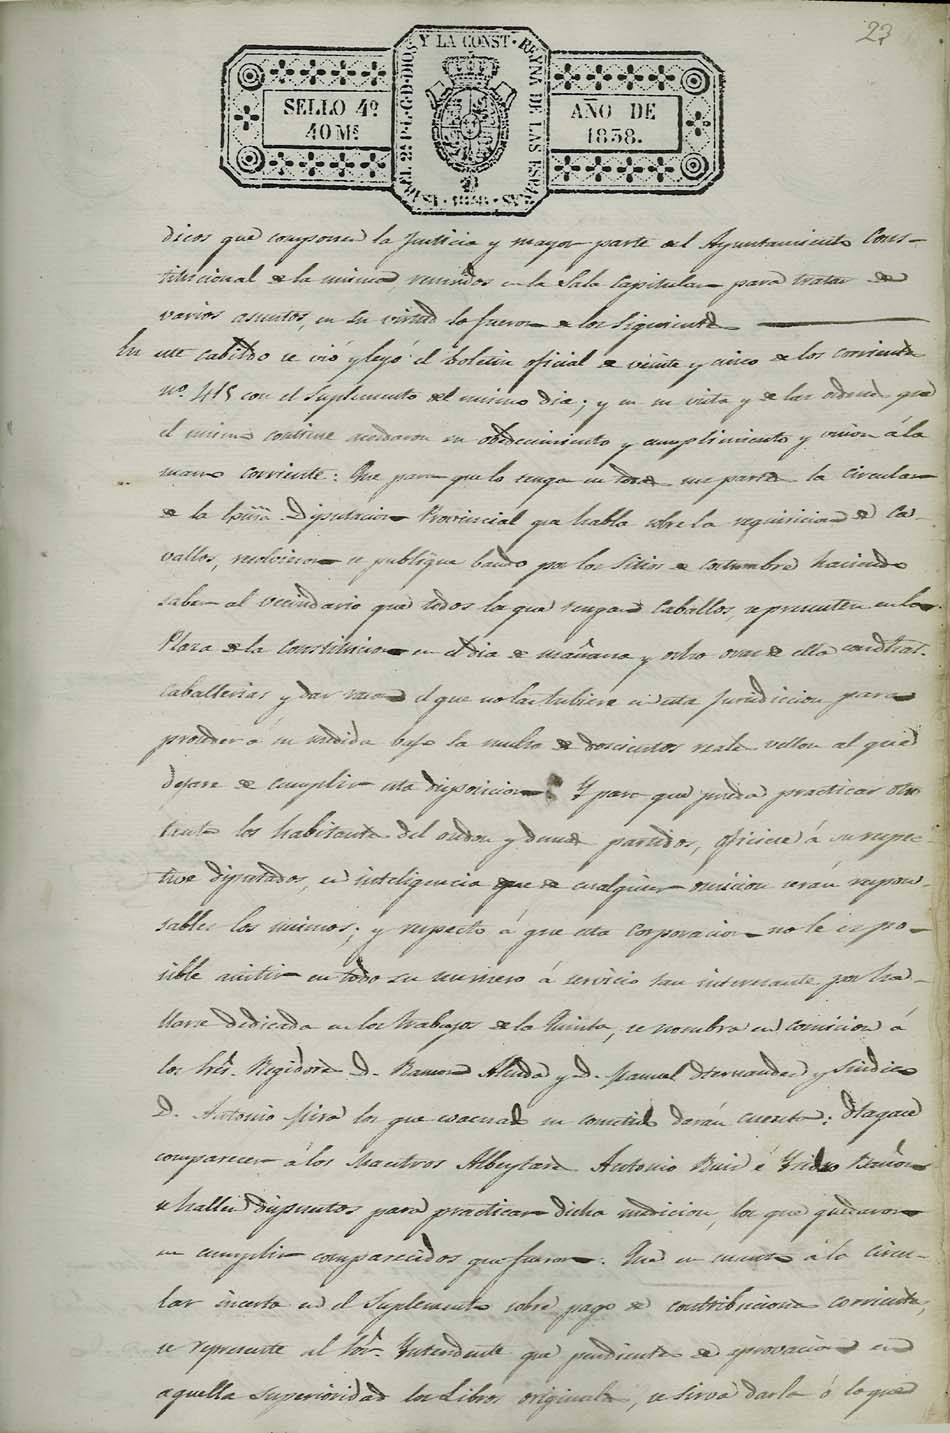 23
SELLO 4º
40 Mˢ
AÑO DE
1838.
YSABEL 2ª P. L. G. D. DIOS Y LA CONST. REYNA DE LAS ESPAÑAS
1838
dicos que componen la Justicia y mayor parte del Ayuntamiento Cons-
titucional de la misma reunidos en la Sala Capitular para tratar de
varios asuntos, en su virtud lo fueron de los siguientes
En este Cabildo se vió y leyó el Boletin oficial de veinte y cinco de los corrientes
nº. 415 con el Suplemento del mismo dia; y en su vista y de las ordenes que
el mismo contiene acordaron su obedecimiento y cumplimiento y union á la
mano corriente: Que para que lo tenga en todas sus partes la circular
de la Diputacion Provincial que habla sobre la requisicion de Ca-
vallos, resolvieron se publique bando por los Sitios de costumbre haciendo
saber al vecindario que todos los que tengan Caballos, se presenten en la
Plaza de la Constitucion en el dia de mañana y ocho oras de ella con dhas.
Caballerias y dar razon el que no las tubiere en esta Juridicion para
proceder á su medida bajo la multa de doscientos reales vellon al que
dejare de cumplir esta disposicion: Y para que pueda practicar otro
tanto los habitantes del y demas partidos, oficiese á su respec-
tivos diputados, en inteligencia que de cualquier omision serán respon-
sables los mismos; y respecto á que esta corporacion no le es po-
sible asistir en todo su numero á servicio tan interesante por ha-
llarse dedicada en los trabajos de la Quinta, se nombra en comision á
los Sres. Regidores D. Ramon y D. Manuel Hernandez y Sindico
D. Antonio los que evacuado su cometido darán cuenta: Hagase
comparecer á los Maestros Albeytares Antonio Ruiz é Ysidro
se hallen dispuestos para practicar dicha medicion, los que quedaron
en cumplir comparecidos que fueron: Que en cuanto á la circu-
lar incerta en el Suplemento sobre pago de contribuciones corrientes,
se represente al Sor. Yntendente que pendientes de aprovacion en
aquella Superioridad los Libros originales, se sirva darla ó lo que